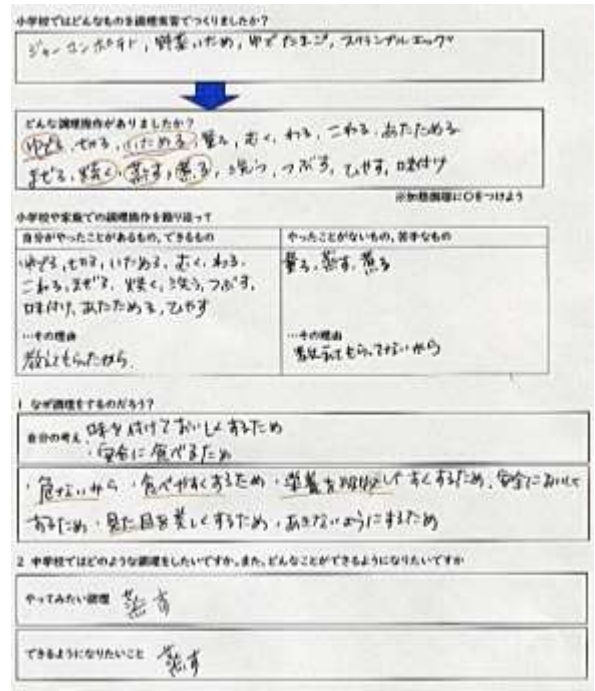 小学校ではどんなものを調理実習でつくりましたか？
ジャーマンポテト，野菜いため，ゆでたまご，スクランブルエッグ
どんな調理操作がありましたか？
ゆでる，切る，いためる，量る，むく，わる，こねる，あたためる
まぜる，焼く，蒸す，煮る，洗う，つぶす，ひやす，味付け
※加熱調理に○をつけよう
小学校や家庭での調理操作を振り返って
自分がやったことがあるもの，できるもの
ゆでる，切る，いためる，むく，わる，
こねる，まぜる，焼く，洗う，つぶす，
味付け，あたためる，ひやす
…その理由
教えてもらったから．
やったことがないもの，苦手なもの
量る，蒸す，煮る
…その理由
教えてもらってないから
1 なぜ調理をするのだろう？
自分の考え 味を付けておいしくするため
・安全に食べるため
・危ないから・食べやすくするため・栄養を吸収しやすくするため，安全においしく
するため・見た目を美しくするため・あきないようにするため
2 中学校ではどのような調理をしたいですか。また，どんなことができるようになりたいですか
やってみたい調理 蒸す
できるようになりたいこと 蒸す